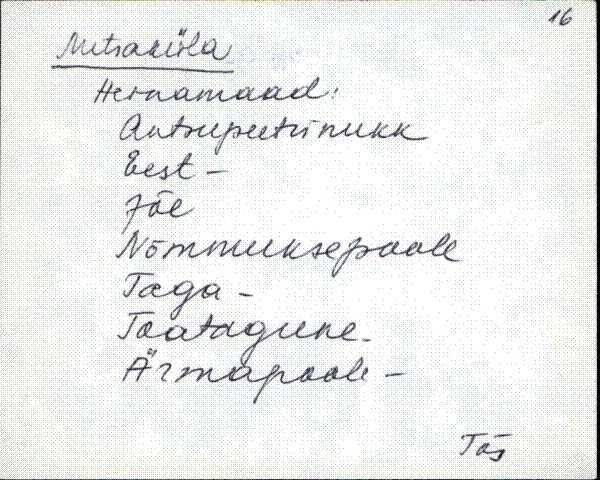 16
Metsaküla
Heinamaad:
Antsupeetrinukk
Eest -
Jõe
Nõmmuksepoole
Taga -
Toatagune -
Ärmapoole -
Tõs